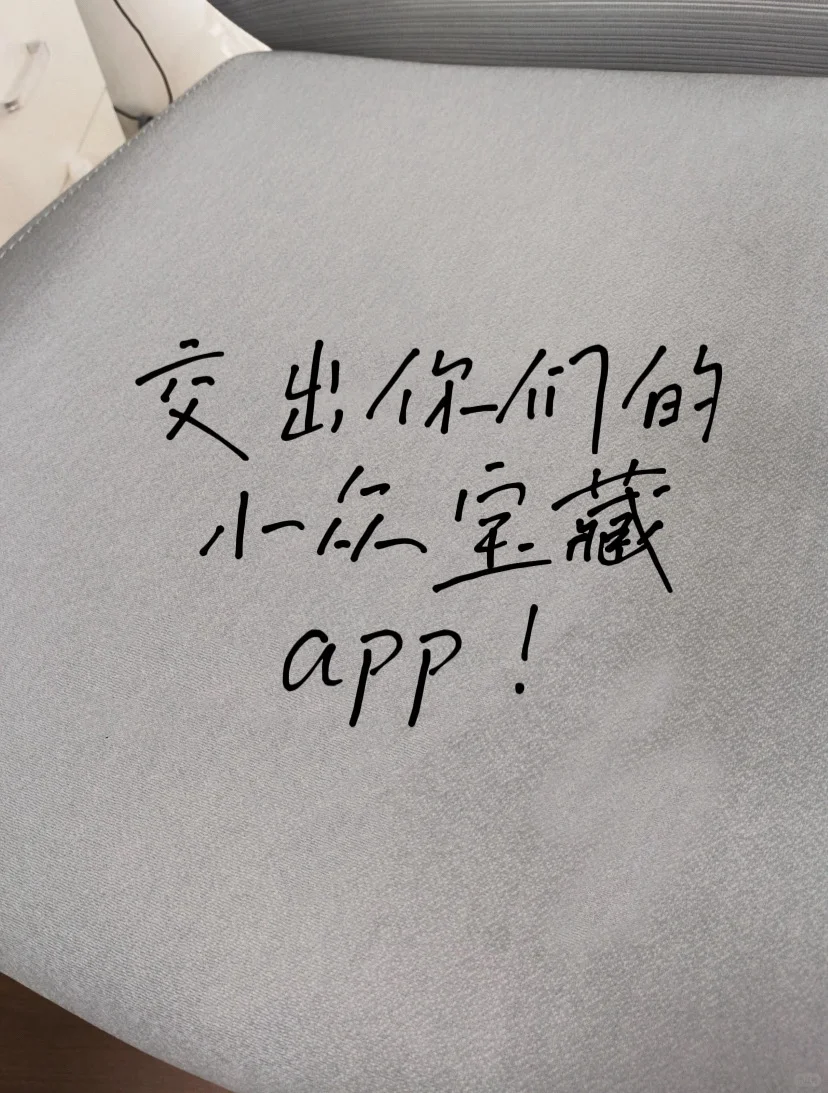 交出你们的
小众宝藏
app！